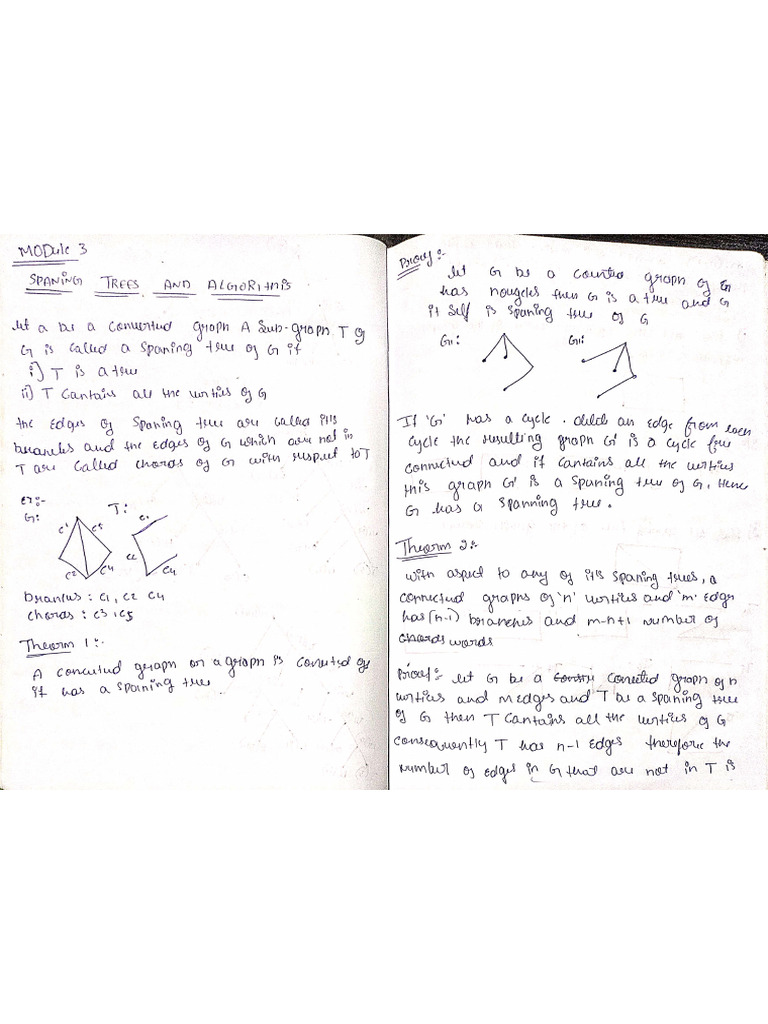 MODule 3
SPANING TREES AND ALGORITHMS
let a be a connected graph A Sub-graph T of
G is called a spaning tree of G if
i) T is a tree
ii) T Cantains all the vertices of G
the edges of spaning tree are called its
branches and the edges of G which are not in
T are called chords of G with respect to T
Ex:-
G:
T:
C1
C5
C2
C4
C1
C2
C4
branches : C1, C2 C4
chords : C3, C5
Theorm 1:-
A conected graph or a graph is conected of
it has a spaning tree
Proof:-
let G be a counted graph of G
has nocycles then G is a tree and G
it self is spaning tree of G
G11:
G11:
If 'G' has a cycle. delete an edge from each
cycle the resulting graph G' is a cycle free
connected and if cantains all the vertices
this graph G' is a spaning tree of G. Hence
G has a spanning tree.
Theorm 2:-
with aspect to any of its spaning trees, a
connected graphs of 'n' vertices and 'm' edge
has (n-1) branches and m-n+1 number of
chords words
Proof:- let G be a conected graph of n
vertices and m edges and T be a spaning tree
of G then T cantains all the vertices of G
consequently T has n-1 edges therefore the
number of edges in G that are not in T is